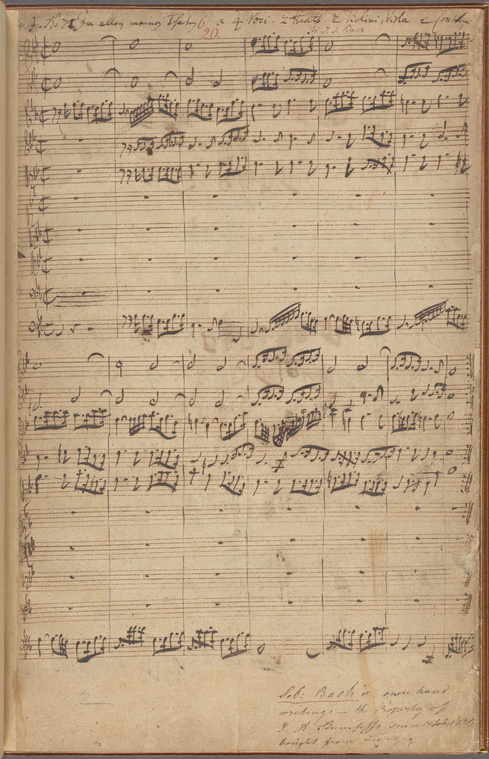 J. J. In allen meinen Thaten à 4 Voci. 2 Hautb. 2 Violini, Viola e Cont.
20.
di J. S. Bach
Seb: Bach's own hand
writing — the Property of
J. A. Stumpff
bought from Leipzig